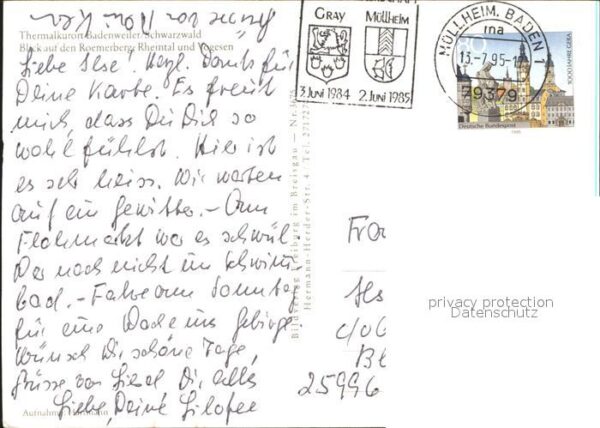 Thermalkurort Badenweiler/Schwarzwald
Blick auf den Roemerberg, Rheintal und Vogesen
Liebe Ilse! Herzl. Dank für
Deine Karte. Es freut
mich, dass Du Dich so
wohl fühlst. Hier ist
es sehr heiss. Wir warten
auf ein Gewitter. – Am
Flohmarkt war es schwül.
War noch nicht im Schwimm-
bad. – Fahre am Sonntag
für eine Woche ins Gebirge
Wünsch Dir schöne Tage,
Grüsse von Dir alles
Liebe, Deine Lilofee
Aufnahme: Hartmann
Bildverlag Freiburg im Breisgau – Nr.
Hermann-Herder-Str. 4 – Tel. 27172
GRAY MÜLLHEIM
3. JUNI 1984 2. JUNI 1985
MÜLLHEIM, BADEN 1
ma
13.-7.95-1
79379
80
1000 JAHRE GERA
Deutsche Bundespost
1995
Frau
Ils
c/o
Bl
25996
privacy protection
Datenschutz